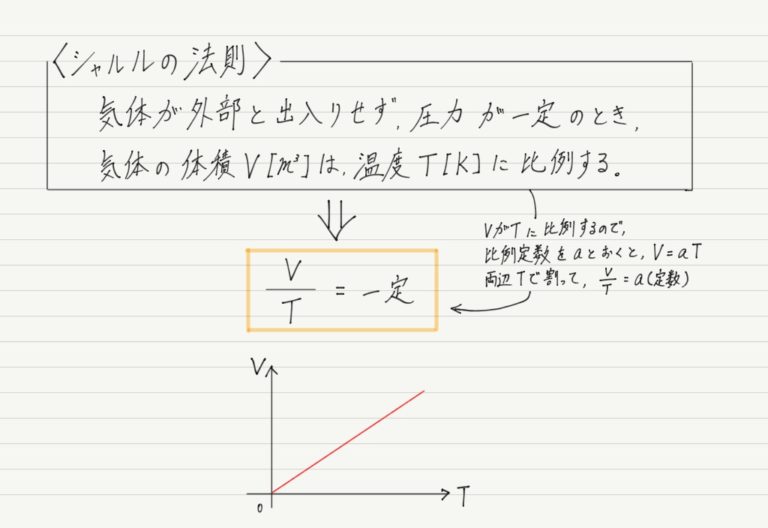 〈シャルルの法則〉
気体が外部と出入りせず,圧力が一定のとき,
気体の体積V[m³]は,温度T[K]に比例する。
⇓
VがTに比例するので,
比例定数をaとおくと,V=aT
両辺Tで割って,V/T=a(定数)
V/T=一定
V
0
T